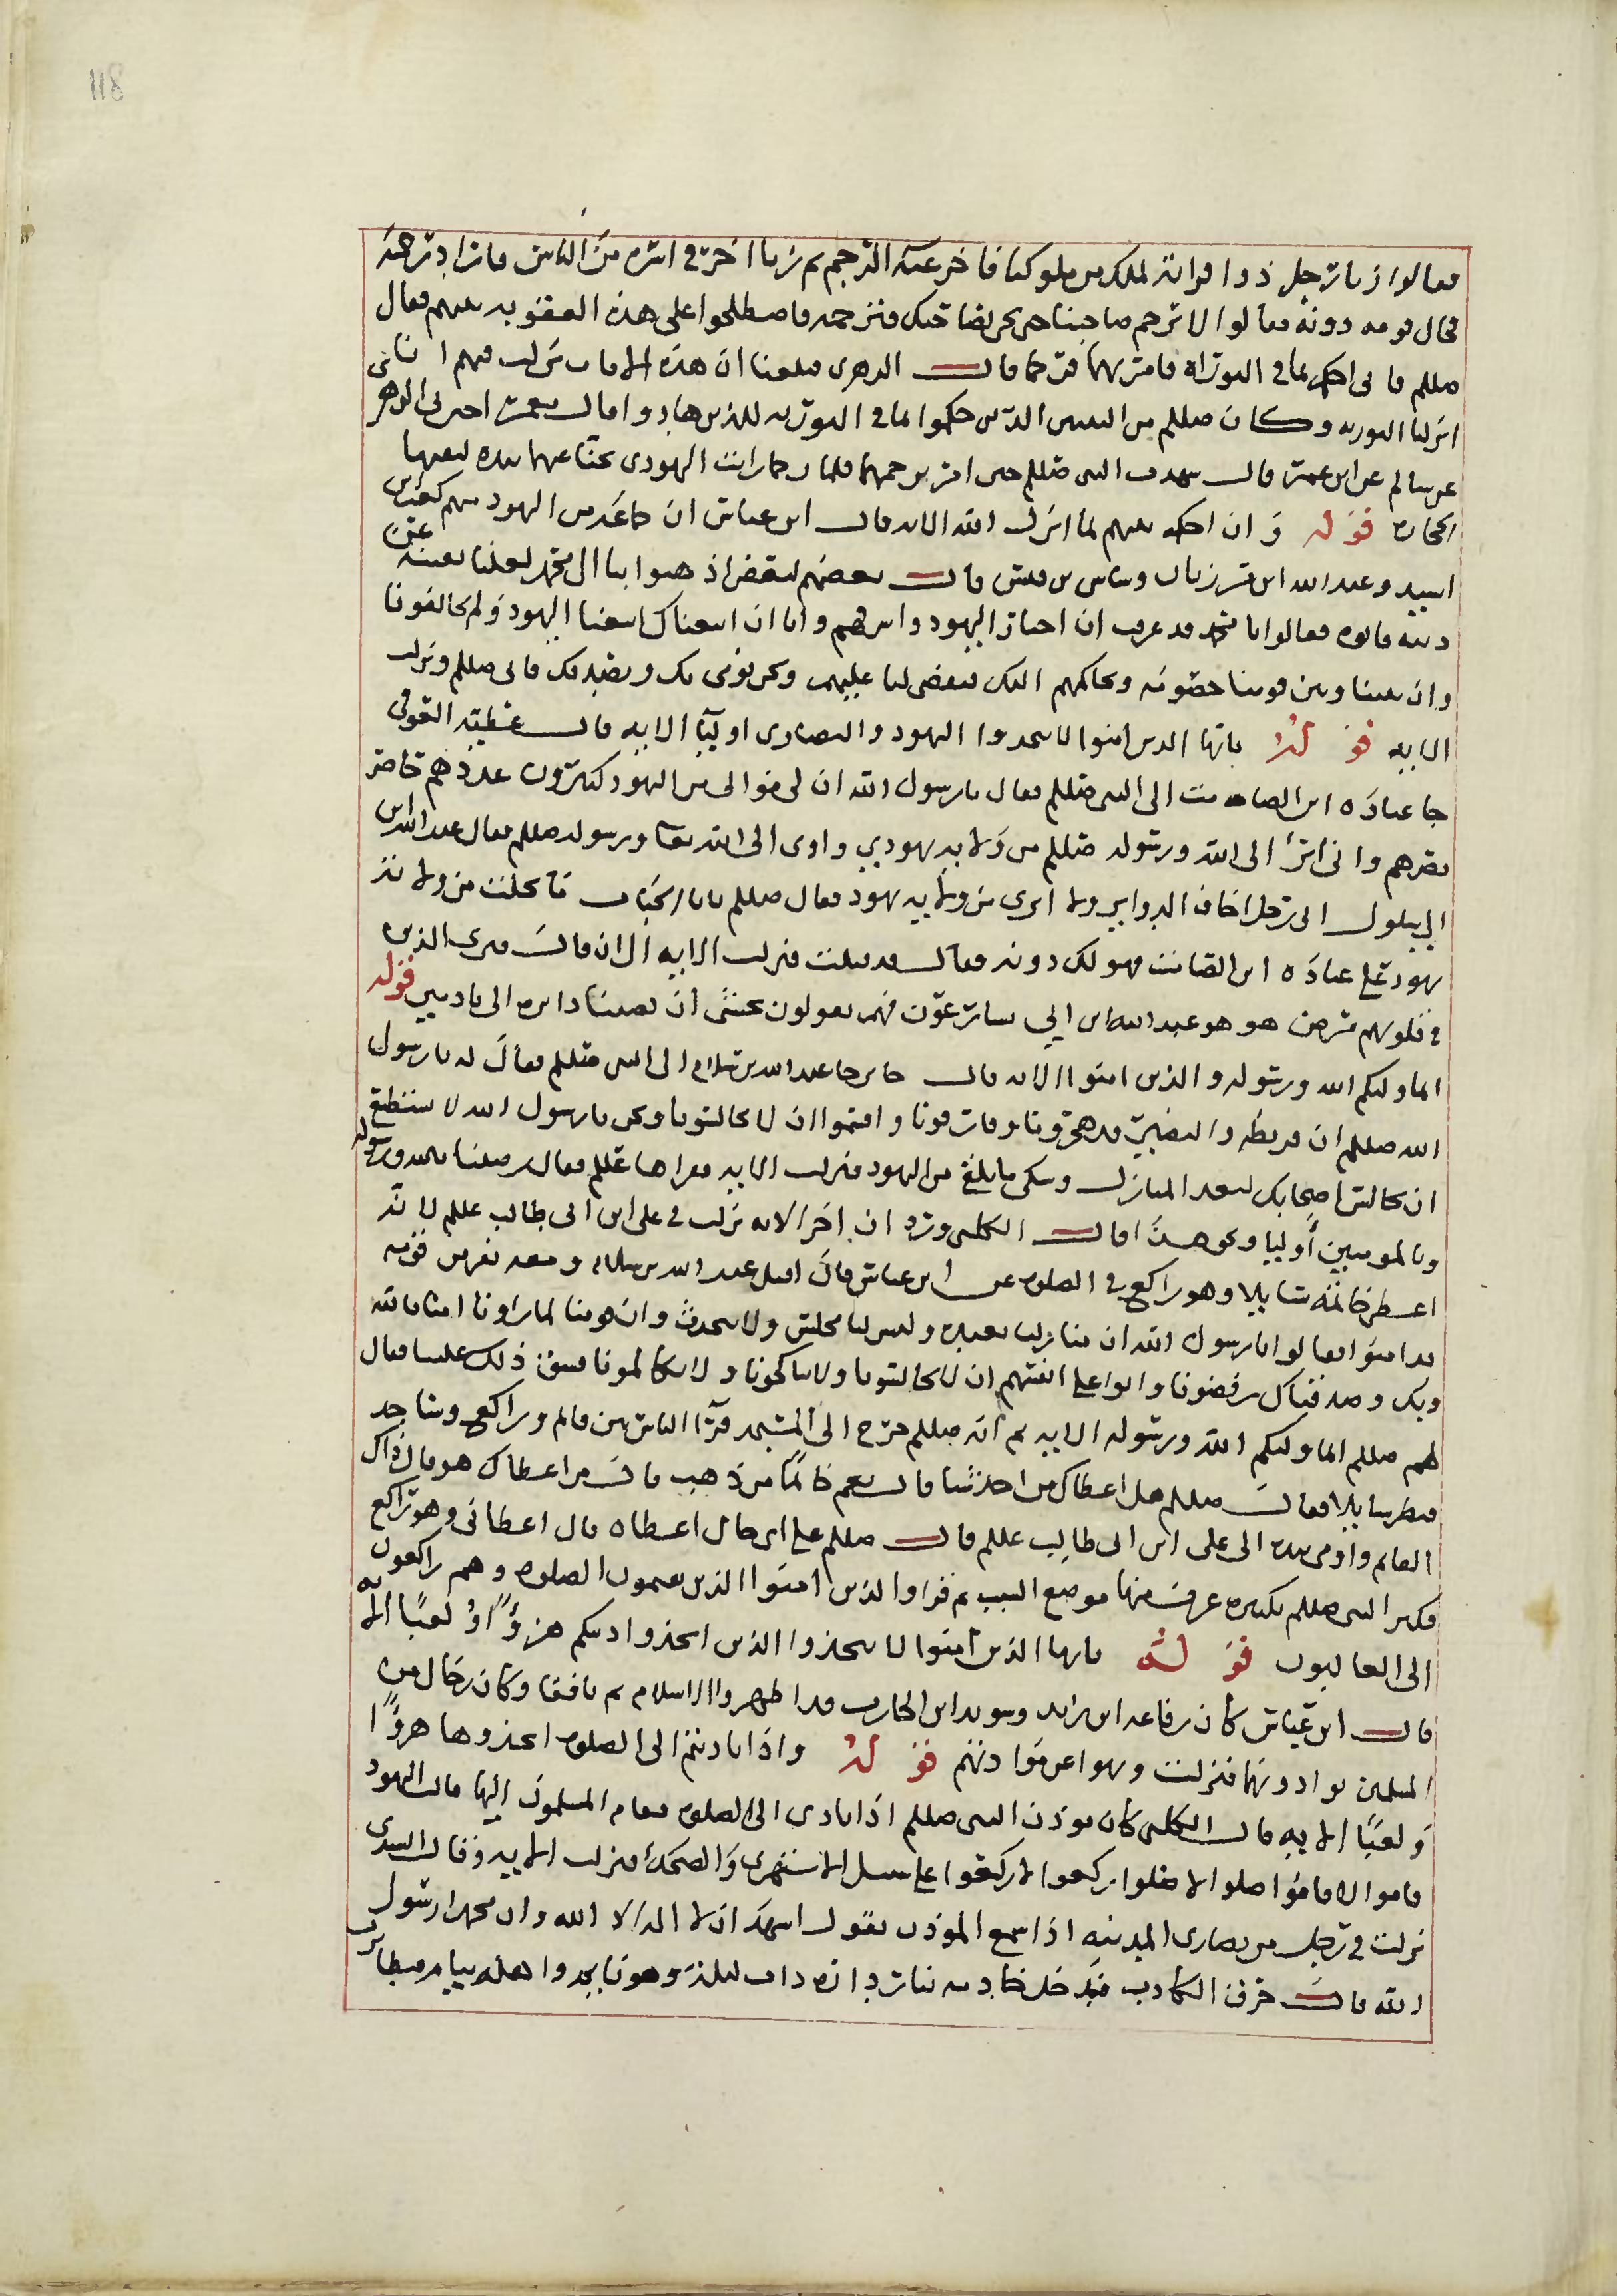 118
فقالوا زنا رجل ذوا قرابة لملك من ملوكنا فاخر عنه الرجم ثم زنا اخر في اسره من الناس فاراد رجمه
فحال قومه دونه فقالوا لا ترجم صاحبنا حتى تجي بصاحبك فترجمه فاصطلحوا على هذه العقوبه بينهم فقال
صللم فاني احكم بما في التوراه فامر بهما فرجما قال الزهري فبلغنا ان هذه الايات نزلت فيهم انا
انزلنا التوريه وكان صللم من النبيين الذين حكموا بما في التوريه للذين هادوا قال معمر اخبرني الزهري
عن سالم عن ابن عمر قال شهدت النبي صللم حين امر برجمهما فلما رجما رايت اليهودي يحنا عنها بيده ليقيها
الحجاره قوله وان احكم بينهم بما انزل الله الايه قال ابن عباس ان جماعه من اليهود منهم كعب بن
اسيد وعبد الله ابن صوريا وساس بن قيس قال بعضهم لبعض اذهبوا بنا الى محمد لعلنا نفتنه عن
دينه فاتوه فقالوا يا محمد قد عرفت ان احبار اليهود واشرافهم وانا ان اتبعناك اتبعنا اليهود ولم يخالفونا
وان بيننا وبين قومنا خصومه ونحاكمهم اليك فتقضي لنا عليهم ونحن نومن بك ونصدقك فابى صللم ونزلت
الايه قوله يايها الذين امنوا لا تتخذوا اليهود والنصارى اوليا الايه قال عطيه العوفي
جا عباده ابن الصامت الى النبي صللم فقال يا رسول الله ان لي موالي من اليهود كثيرون عددهم حاضر
نصرهم واني ابرا الى الله ورسوله صللم من ولايه يهود واوي الى الله تعا ورسوله صللم فقال عبد الله ابن
ابي بن سلول اني رجل اخاف الدواير ولا ابري من ولايه يهود فقال صللم يابا الحباب ما بخلت من ولايه
يهود على عباده ابن الصامت فهو لك دونه فقال قد قبلت فنزلت الايه الى ان قال فترى الذين
في قلوبهم مرض هو هو عبد الله ابن ابي يسارعون فيهم يقولون نخشى ان تصيبنا دايره الى نادمين قوله
انما وليكم الله ورسوله والذين امنوا الايه قال جابر جا عبد الله بن سلام الى النبي صللم فقال له يا رسول
الله صللم ان قريظه والنضير قد هجرونا وفارقونا واقسموا ان لا يجالسونا ونحن يا رسول الله لا نستطيع
ان نجالس اصحابك لبعد المنازل وشكى ما يلقى من اليهود فنزلت الايه فقراها عللم فقال رضينا بالله ورسوله
وبالمومنين أوليا ونحو هذا قال الكلبي وزاد ان اخر الايه نزلت في على ابن ابي طالب عللم لانه
اعطى خاتمه سايلا وهو راكع في الصلوه عن ابن عباس قال اقبل عبد الله بن سلام ومعه نفر من قومه
قد امنوا فقالوا يا رسول الله ان منازلنا بعيده وليس لنا مجلس ولا متحدث وان قومنا لما راونا امنا بالله
وبك وصدقناك رفضونا والوا على انفسهم ان لا يجالسونا ولا يناكحونا ولا يكالمونا فشق ذلك علينا فقال
لهم صللم انما وليكم الله ورسوله الايه ثم انه صللم خرج الى المسجد فرا الناس بين قايم وراكع وساجد
فنظر سايلا فقال صللم هل اعطاك من احد شيا قال نعم خاتما من ذهب قال من اعطاك هو قال ذاك
القايم واومى بيده الى على ابن ابي طالب عللم قال صللم على اي حال اعطاه قال اعطاني وهو راكع
فكبر النبي صللم تكبيره عرفت منها موضع السبب ثم قرا والذين امنوا الذين يقيمون الصلوه وهم راكعون
الى الغالبون قوله يايها الذين امنوا لا تتخذوا الذين اتخذوا دينكم هزوا او لعبا الايه
قال ابن عباس كان رفاعه ابن زيد وسويد ابن الحارث قد اظهروا الاسلام ثم نافقا وكان رجال من
المسلمين يوادونهما فنزلت ونهوا عن موادتهم قوله واذا ناديتم الى الصلوه اتخذوها هزوا
ولعبا الايه قال الكلبي كان موذن النبي صللم اذا نادى الى الصلوه فقام المسلمون اليها قالت اليهود
قاموا لا قاموا صلوا لا صلوا ركعوا لا ركعوا على سبيل الاستهزي والضحك فنزلت الايه وقال السدي
نزلت في رجل من نصارى المدينه اذا سمع الموذن يقول اشهد ان لا اله الا الله وان محمدا رسول
الله قال حرق الكاذب فدخل خادمه بنار ذات ليله وهو نايم واهله نيام فطارت